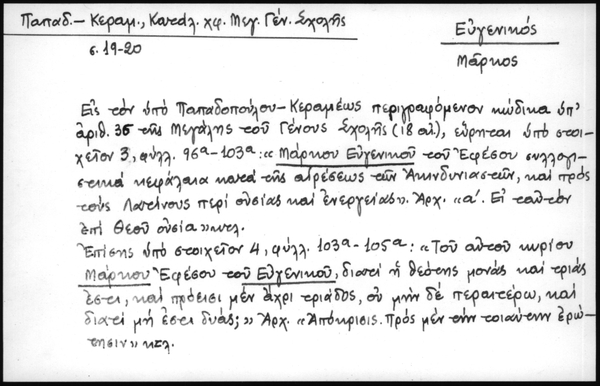 Παπαδ.- Κεραμ., Κατάλ. χφ. Μεγ. Γέν. Σχολῆς
σ. 19-20
Εὐγενικός
Μᾶρκος
Εἰς τὸν ὑπὸ Παπαδοπούλου-Κεραμέως περιγραφόμενον κώδικα ὑπ'
ἀριθ. 35 τῆς Μεγάλης τοῦ Γένους Σχολῆς (18 αἰ.), εὕρηται ὑπὸ στοι-
χεῖον 3, φύλλ. 96α-103α: « Μάρκου Εὐγενικοῦ τοῦ Ἐφέσου συλλογι-
στικὰ κεφάλαια κατὰ τῆς αἱρέσεως τῶν Ἀκινδυνιαστῶν, καὶ πρὸς
τοὺς Λατίνους περὶ οὐσίας καὶ ἐνεργείας». Ἀρχ. «α'. Εἰ ταὐτὸν
ἐπὶ Θεοῦ οὐσία» κτλ.
Ἐπίσης ὑπὸ στοιχεῖον 4, φύλλ. 103α-105α: «Τοῦ αὐτοῦ κυρίου
Μάρκου Ἐφέσου τοῦ Εὐγενικοῦ, διατί ἡ θεότης μονὰς καὶ τριάς
ἐστι, καὶ πρόεισι μὲν ἄχρι τριάδος, οὐ μὴν δὲ περαιτέρω, καὶ
διατί μή ἐστι δυάς;» Ἀρχ. «Ἀπόκρισις. Πρὸς μὲν τὴν τοιαύτην ἐρώ-
τησιν» κτλ.